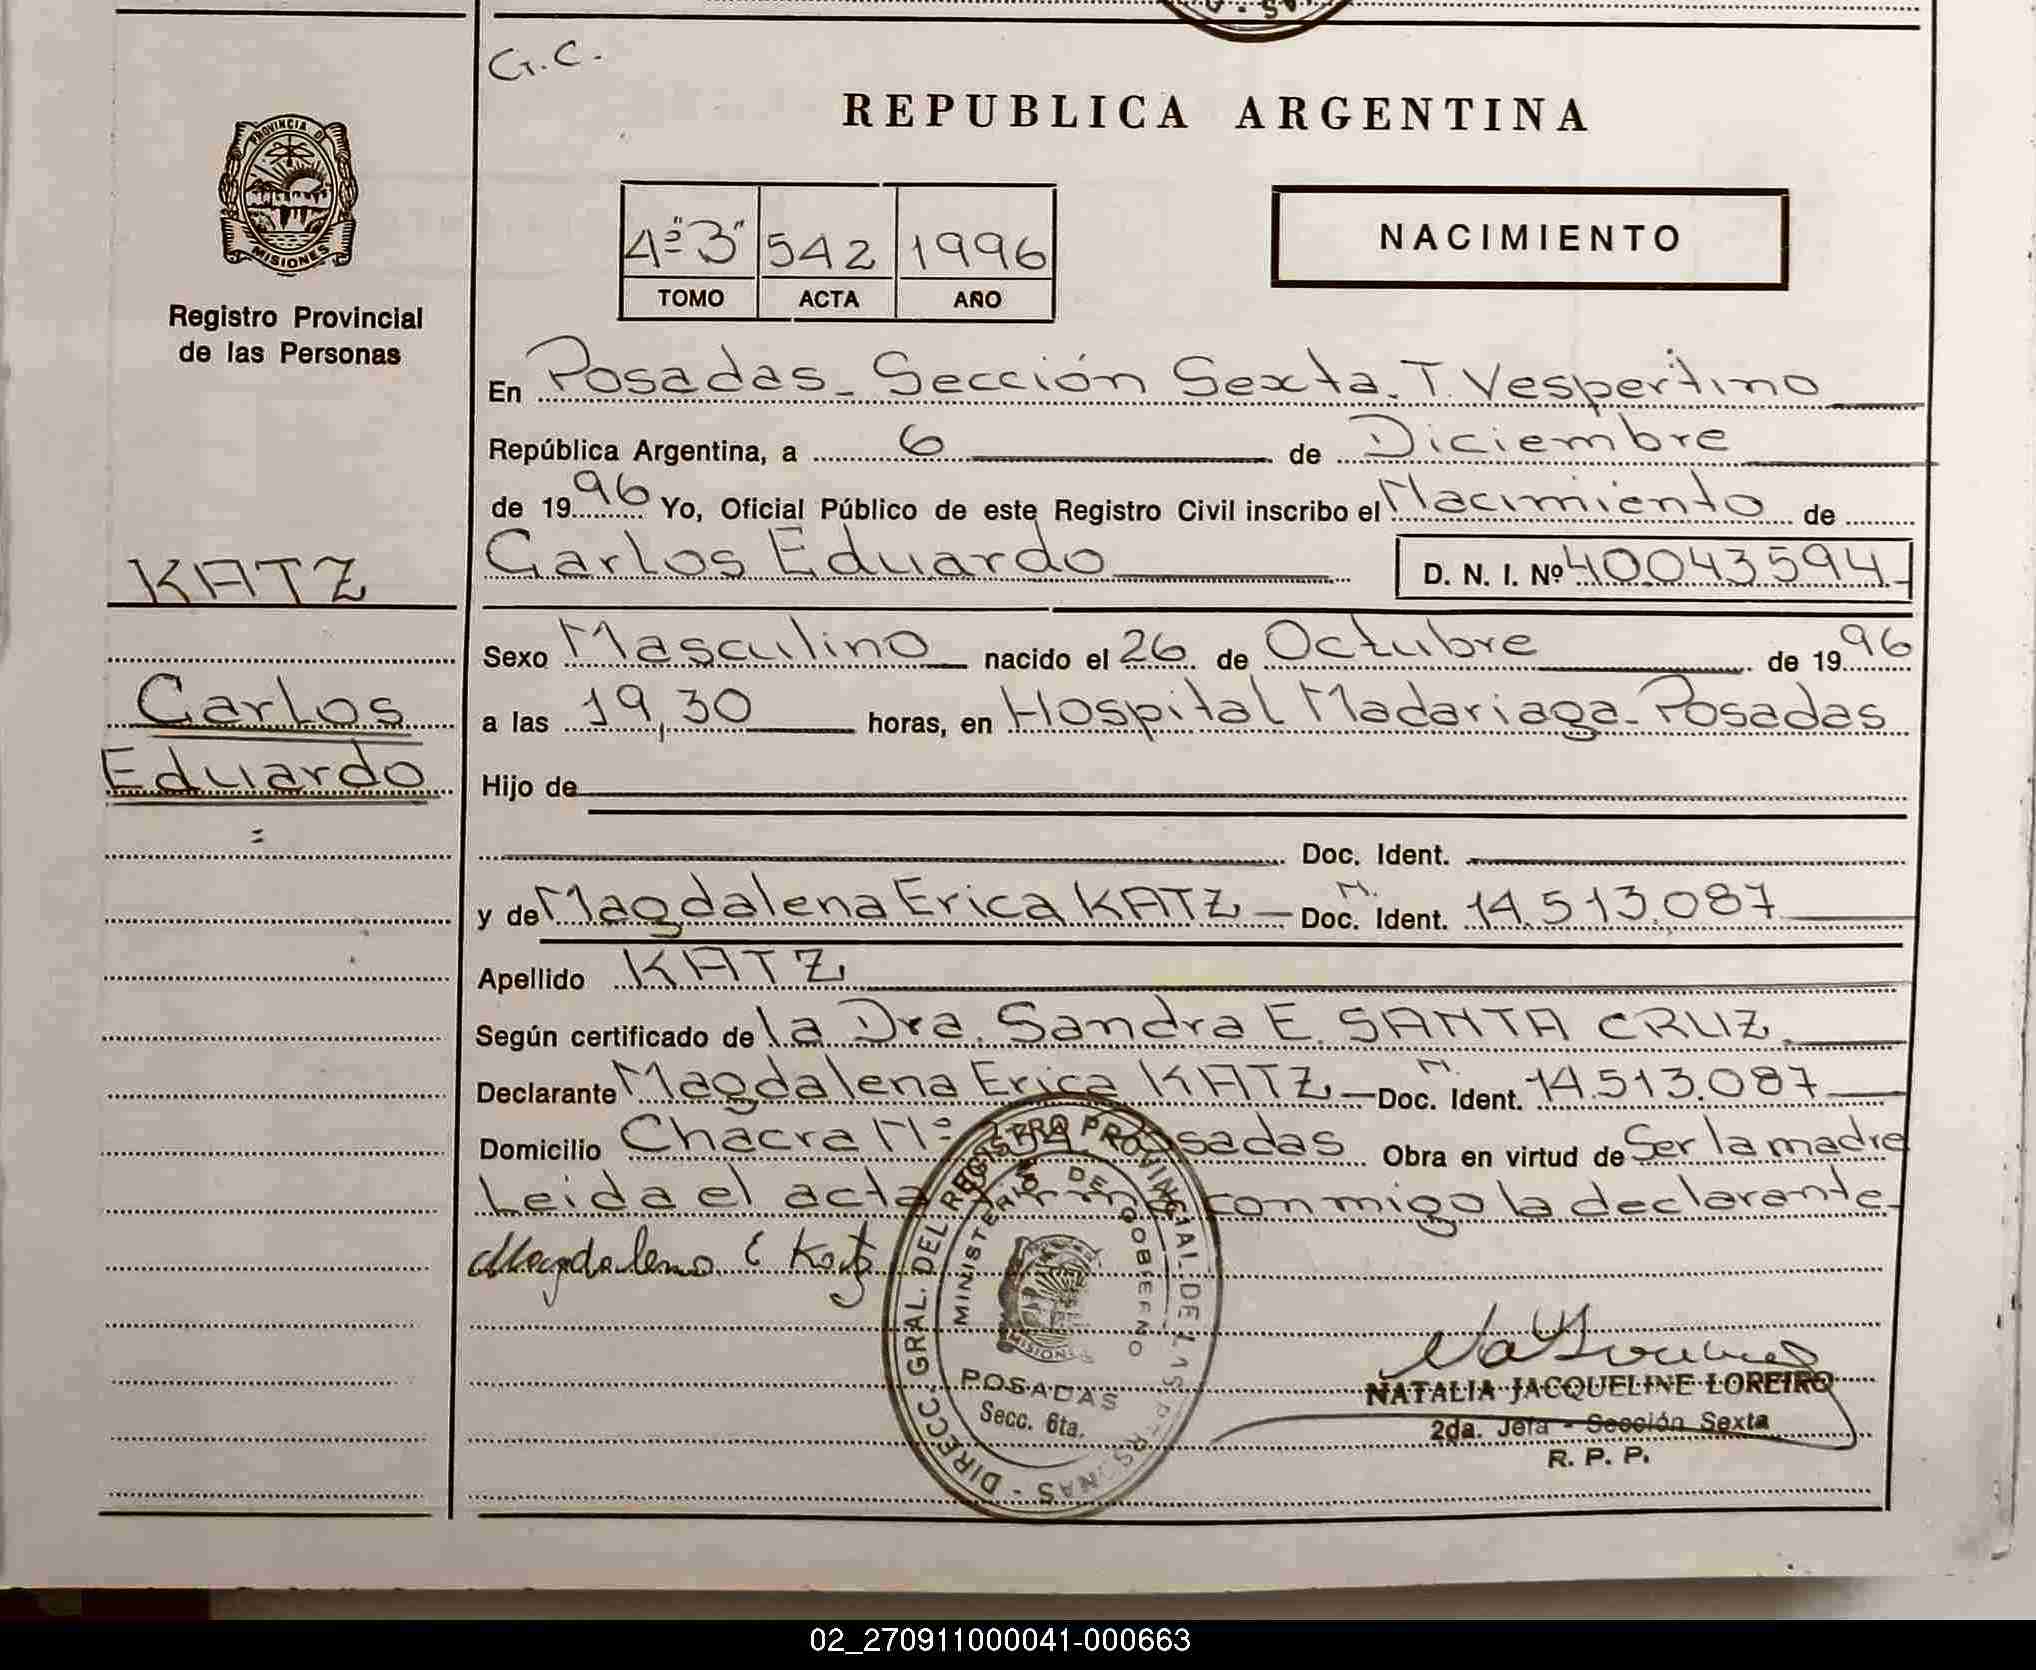 G.C.
REPUBLICA ARGENTINA
PROVINCIA DE
MISIONES
Registro Provincial
de las Personas
4º "3" 542 1996
TOMO ACTA AÑO
NACIMIENTO
En Posadas - Sección Sexta. T. Vespertino
República Argentina, a 6 de Diciembre
de 1996 Yo, Oficial Público de este Registro Civil inscribo el Nacimiento de
Carlos Eduardo D. N. I. Nº 40043594
KATZ
Carlos
Eduardo
=
Sexo Masculino nacido el 26 de Octubre de 1996
a las 19,30 horas, en Hospital Madariaga - Posadas
Hijo de
Doc. Ident.
y de Magdalena Erica KATZ - Doc. M. Ident. 14.513.087
Apellido KATZ
Según certificado de la Dra. Sandra E. SANTA CRUZ
Declarante Magdalena Erica KATZ - Doc. M. Ident. 14.513.087
Domicilio Chacra Nº Posadas Obra en virtud de Ser la madre
Leida el acta conmigo la declarante
Magdalena E Katz
DIRECC. GRAL. DEL REGISTRO PROVINCIAL DE LAS PERSONAS
MINISTERIO DE GOBIERNO
MISIONES
POSADAS
Secc. 6ta.
NATALIA JACQUELINE LOREIRO
2da. Jefa - Sección Sexta
R. P. P.
02_270911000041-000663